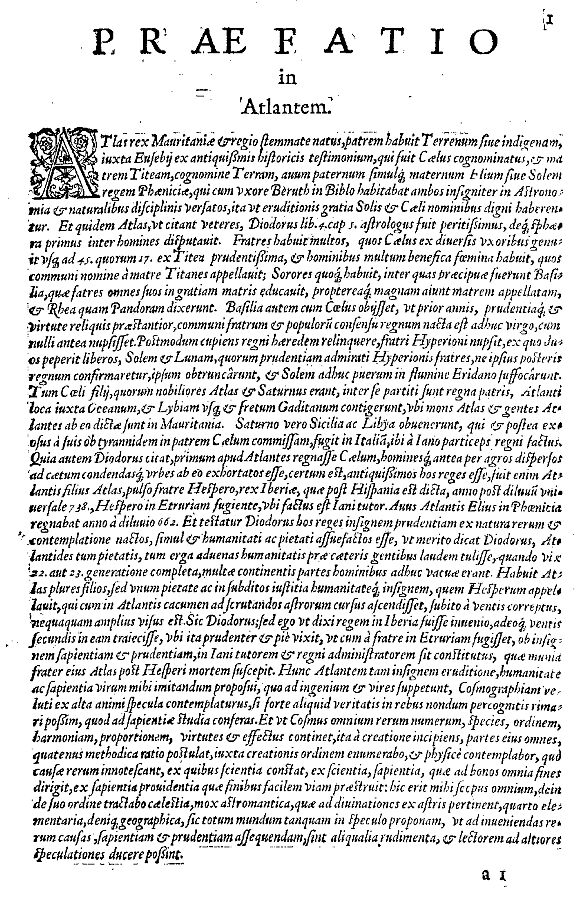 1
PRÆFATIO
in
Atlantem.
ATlas rex Mauritaniæ & regio stemmate natus, patrem habuit Terrenum siue indigenam,
iuxta Eusebij ex antiquißimis historicis testimonium, qui fuit Cælus cognominatus, & ma
trem Titeam, cognomine Terram, auum paternum simulq́; maternum Elium siue Solem
regem Phæniciæ, qui cum vxore Beruth in Biblo habitabat ambos insigniter in Astrono-
mia & naturalibus disciplinis versatos, ita vt eruditionis gratia Solis & Cæli nominibus digni haberen-
tur. Et quidem Atlas, vt citant veteres, Diodorus lib. 4. cap 5. astrologus fuit peritißimus, deq́; sphæ-
ra primus inter homines disputauit. Fratres habuit multos, quos Cælus ex diuersis vxoribus genu-
it vsq́; ad 45. quorum 17. ex Titea prudentißima, & hominibus multum benefica fœmina habuit, quos
communi nomine à matre Titanes appellauit; Sorores quoq́; habuit, inter quas præcipuæ fuerunt Basi-
lia, quæ fatres omnes suos in gratiam matris educauit, propterea q́; magnam aiunt matrem appellatam,
& Rhea quam Pandoram dixerunt. Basilia autem cum Cœlus obijsset, vt prior annis, prudentiaq́; &
virtute reliquis præstantior, communi fratrum & populorũ consensu regnum nacta est adhuc virgo, cum
nulli antea nupsisset. Postmodum cupiens regni hæredem relinquere, fratri Hyperioni nupsit, ex quo du-
os peperit liberos, Solem & Lunam, quorum prudentiam admirati Hyperionis fratres, ne ipsius posteris
regnum confirmaretur, ipsum obtruncârunt, & Solem adhuc puerum in flumine Eridano suffocârunt.
Tum Cæli filij, quorum nobiliores Atlas & Saturnus erant, inter se partiti sunt regna patris, Atlanti
loca iuxta Oceanum, & Lybiam vsq́; & fretum Gaditanum contigerunt, vbi mons Atlas & gentes At-
lantes ab eo dictæ sunt in Mauritania. Saturno vero Sicilia ac Libya obuenerunt, qui & postea ex-
osus à suis ob tyrannidem in patrem Cælum commissam, fugit in Italiã, ibi à Iano particeps regni factus.
Quia autem Diodorus citat, primum apud Atlantes regnasse Cælum, hominesq́; antea per agros dispersos
ad cætum condendasq́; vrbes ab eo exhortatos esse, certum est, antiquißimos hos reges esse, fuit enim At-
lantis filius Atlas, pulso fratre Hespero, rex Iberiæ, quæ post Hispania est dicta, anno post diluuiũ vni-
uersale 738., Hespero in Etruriam fugiente, vbi factus est Iani tutor. Auus Atlantis Elius in Phœnicia
regnabat anno à diluuio 662. Et testatur Diodorus hos reges insignem prudentiam ex natura rerum &
contemplatione nactos, simul & humanitati ac pietati assuefactos esse, vt merito dicat Diodorus, At-
lantides tum pietatis, tum erga aduenas humanitatis præ cæteris gentibus laudem tulisse, quando vix
22. aut 23. generatione completa, multæ continentis partes hominibus adhuc vacuæ erant. Habuit At-
las plures filios, sed vnum pietate ac in subditos iustitia humanitateq́; insignem, quem Hesperum appel-
lauit, qui cum in Atlantis cacumen ad scrutandos astrorum cursus ascendisset, subito à ventis correptus,
nequaquam amplius visus est. Sic Diodorus; sed ego vt dixi regem in Iberia fuisse inuenio, adeoq́; ventis
secundis in eam traiecisse, vbi ita prudenter & piè vixit, vt cum à fratre in Etruriam fugisset, ob insig-
nem sapientiam & prudentiam, in Iani tutorem & regni administratorem sit constitutus, quæ munia
frater eius Atlas post Hesperi mortem suscepit. Hunc Atlantem tam insignem eruditione, humanitate
ac sapientia virum mihi imitandum proposui, quo ad ingenium & vires suppetunt, Cosmographiam ve-
luti ex alta animi specula contemplaturus, si forte aliquid veritatis in rebus nondum percognitis rima-
ri possim, quod ad sapientiæ studia conferas. Et vt Cosmus omnem rerum numerum, species, ordinem,
harmoniam, proportionem, virtutes & effectus continet, ita à creatione incipiens, partes eius omnes,
quatenus methodica ratio postulat, iuxta creationis ordinem enumerabo, & physicè contemplabor, quò
causæ rerum innotescant, ex quibus scientia constat, ex scientia, sapientia, quæ ad bonos omnia fines
dirigit, ex sapientia prouidentia quæ finibus facilem viam præstruit: hic erit mihi scopus omnium, dein
de suo ordine tractabo cælestia, mox astromantica, quæ ad diuinationes ex astris pertinent, quarto ele-
mentaria, deniq́; geographica, sic totum mundum tanquam in speculo proponam, vt ad inueniendas re-
rum causas, sapientiam & prudentiam assequendam, sint aliqualia rudimenta, & lectorem ad altiores
speculationes ducere poßint.
a 1